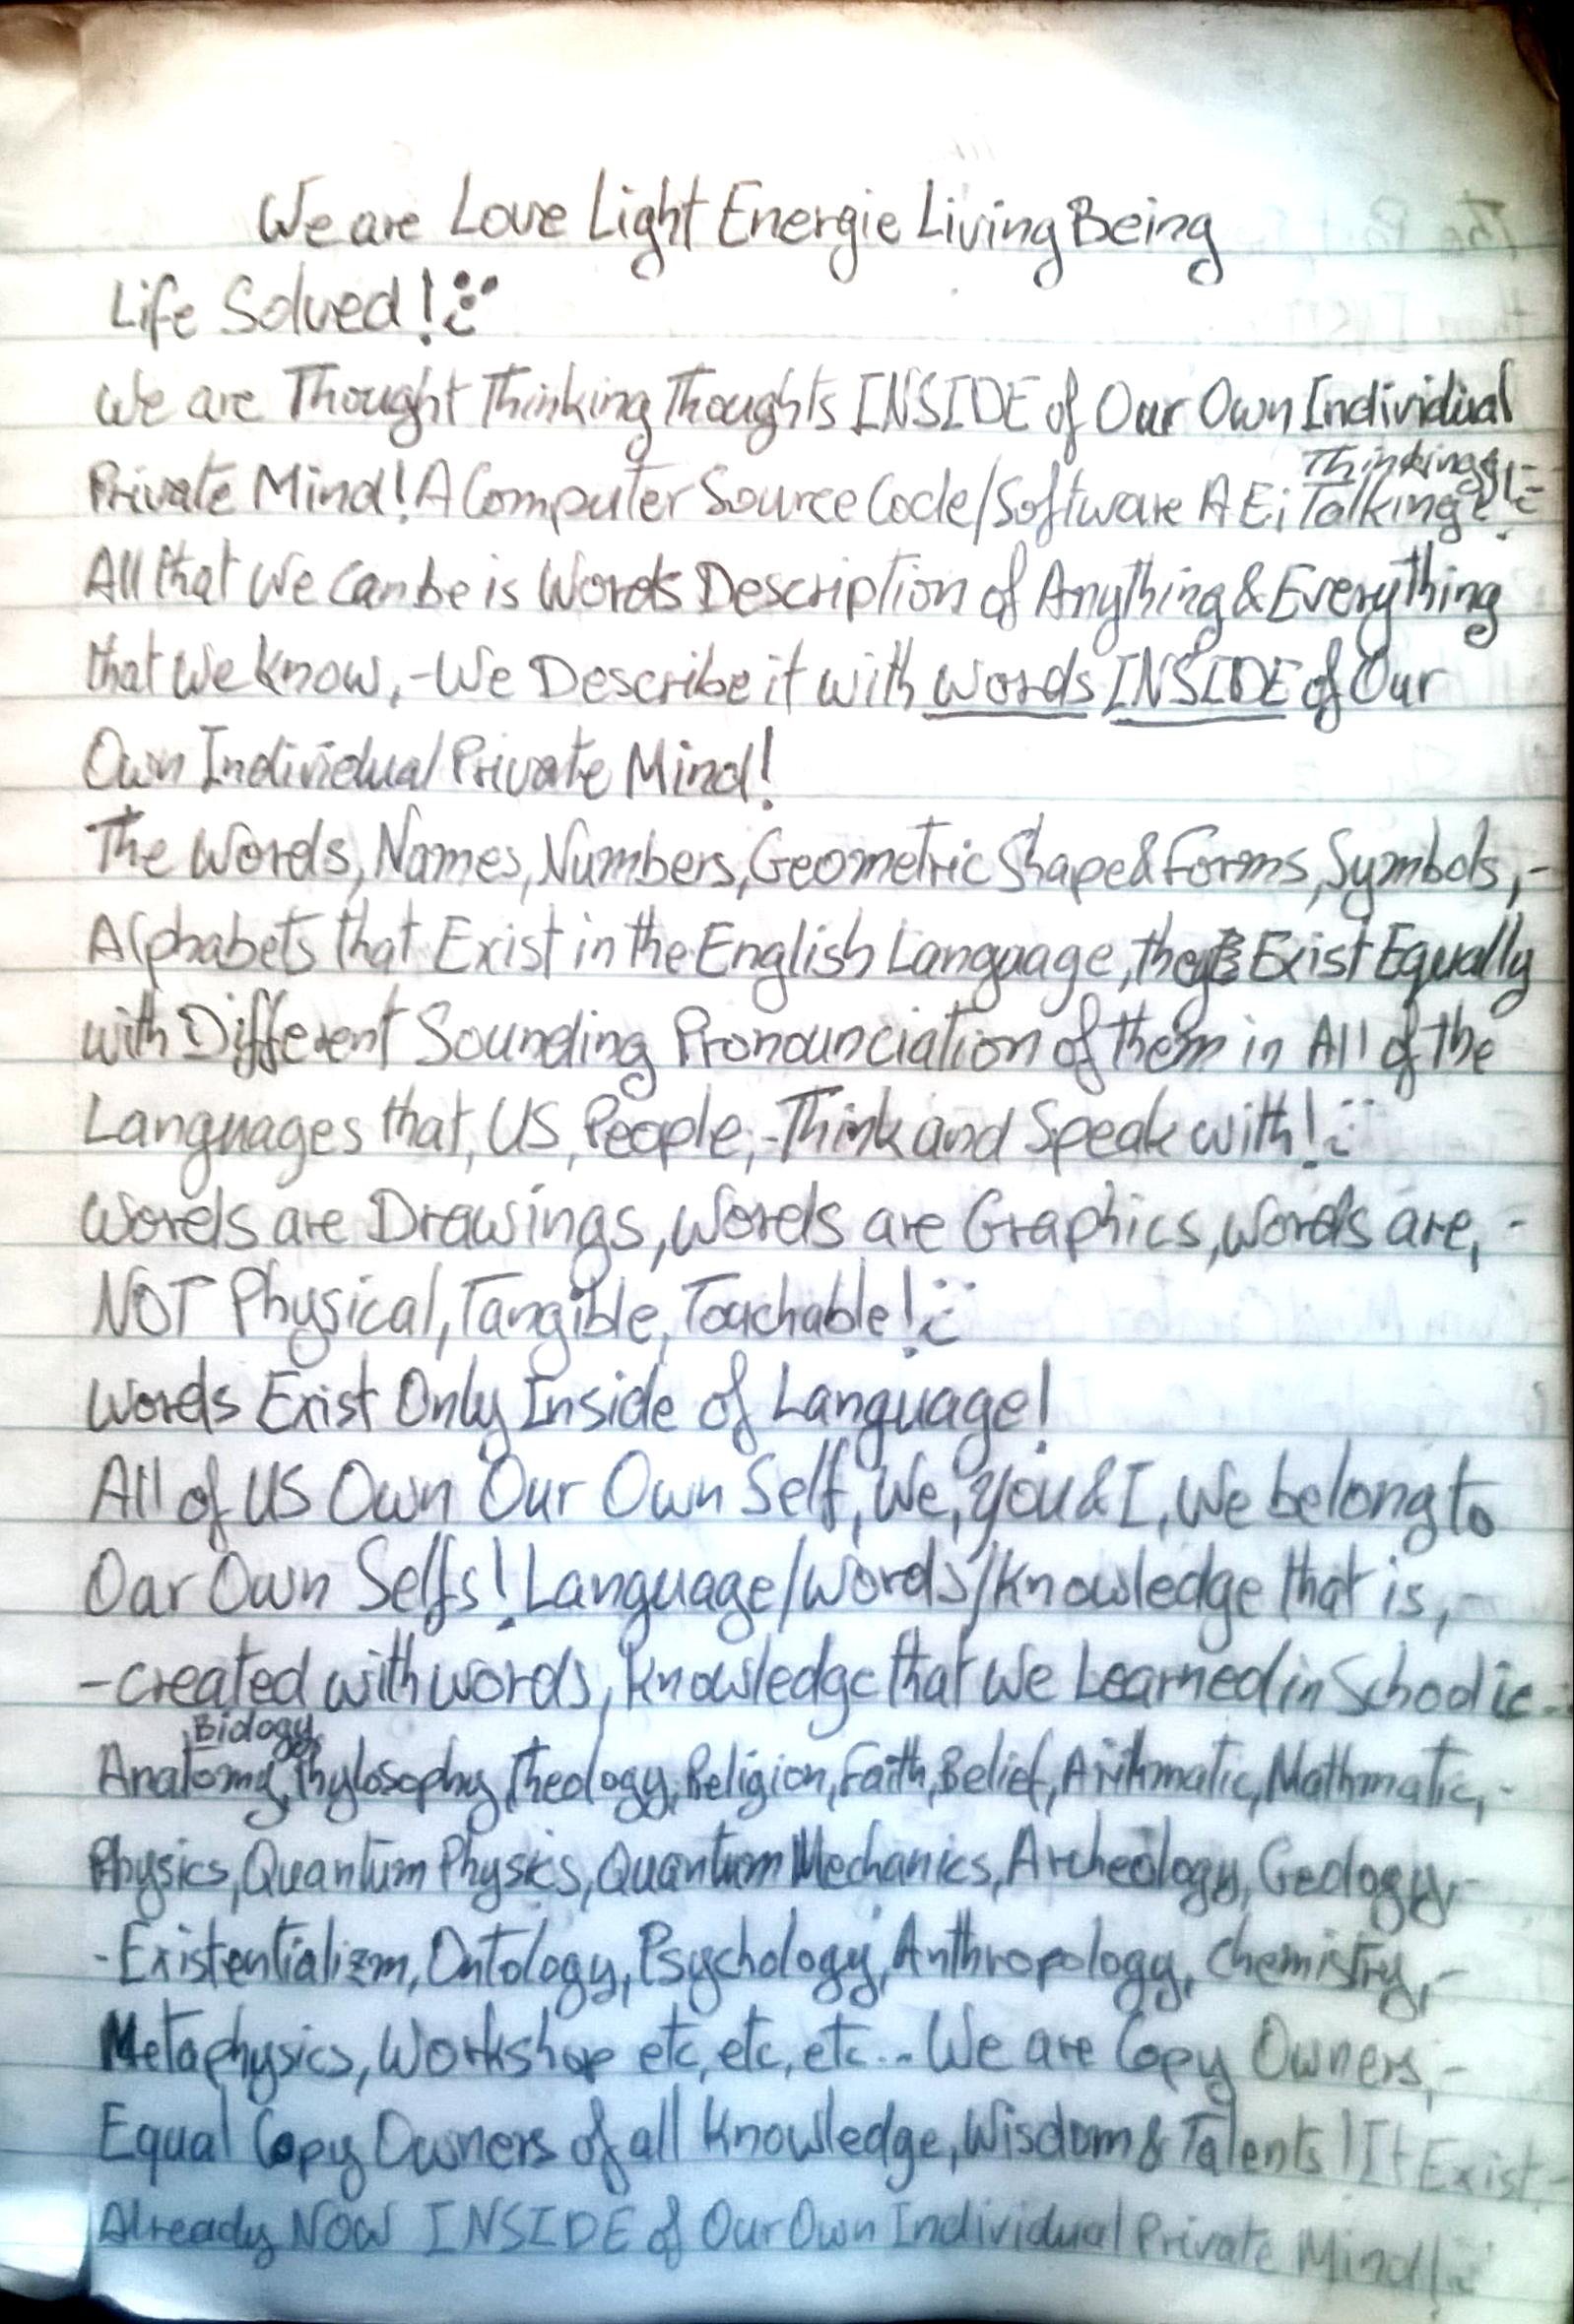 We are Love Light Energie Living Being
Life Solved!
We are Thought Thinking Thoughts INSIDE of Our Own Individual
Thinking
Private Mind! A Computer Source Code/Software A Ei Talking!
All that We Can be is Words Description of Anything & Everything
that We know, -We Describe it with words INSIDE of Our
Own Individual Private Mind!
The Words, Names, Numbers, Geometric Shape & Forms, Symbols, -
Alphabets that Exist in the English Language, they Exist Equally
with Different Sounding Pronounciation of them in All of the
Languages that, US, People, -Think and Speak with!
Words are Drawings, Words are Graphics, words are, -
NOT Physical, Tangible, Toachable!
Words Exist Only Inside of Language!
All of US Own Our Own Self, We, You & I, We belong to
Our Own Selfs! Language/Words/Knowledge that is, -
-created with words, Knowledge that We Learned in School ie..
Biology
Anatomy, Phylosophy, Theology, Religion, Faith, Belief, Arithmatic, Mathmatic, -
Physics, Quantum Physics, Quantum Mechanics, Archeology, Geology, -
-Existentializm, Ontology, Psychology, Anthropology, Chemistry, -
Metaphysics, Workshop etc, etc, etc... We are Copy Owners, -
Equal Copy Owners of all Knowledge, Wisdom & Talents! It Exist -
Already NOW INSIDE of Our Own Individual Private Mind!